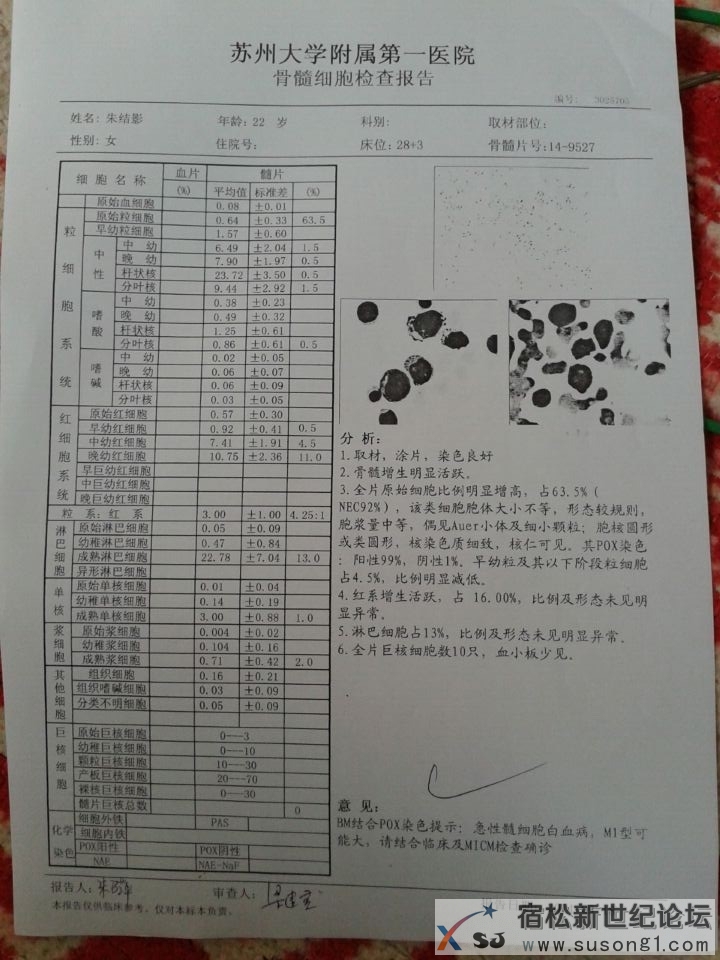 苏州大学附属第一医院
骨髓细胞检查报告
编号: 3025705
姓名: 朱结影 年龄: 22 岁 科别: 取材部位:
性别: 女 住院号: 床位: 28+3 骨髓片号: 14-9527
细胞名称 血片 髓片
(%) 平均值 标准差 (%)
粒细胞系统
原始血细胞 0.08 ±0.01
原始粒细胞 0.64 ±0.33 63.5
早幼粒细胞 1.57 ±0.60
中性 中 幼 6.49 ±2.04 1.5
晚 幼 7.90 ±1.97 0.5
杆状核 23.72 ±3.50 0.5
分叶核 9.44 ±2.92 1.5
嗜酸 中 幼 0.38 ±0.23
晚 幼 0.49 ±0.32
杆状核 1.25 ±0.61
分叶核 0.86 ±0.61 0.5
嗜碱 中 幼 0.02 ±0.05
晚 幼 0.06 ±0.07
杆状核 0.06 ±0.09
分叶核 0.03 ±0.05
红细胞系统
原始红细胞 0.57 ±0.30
早幼红细胞 0.92 ±0.41 0.5
中幼红细胞 7.41 ±1.91 4.5
晚幼红细胞 10.75 ±2.36 11.0
早巨幼红细胞
中巨幼红细胞
晚巨幼红细胞
粒 系: 红 系 3.00 ±1.00 4.25:1
淋巴细胞
原始淋巴细胞 0.05 ±0.09
幼稚淋巴细胞 0.47 ±0.84
成熟淋巴细胞 22.78 ±7.04 13.0
异形淋巴细胞
单核
原始单核细胞 0.01 ±0.04
幼稚单核细胞 0.14 ±0.19
成熟单核细胞 3.00 ±0.88 1.0
浆细胞
原始浆细胞 0.004 ±0.02
幼稚浆细胞 0.104 ±0.16
成熟浆细胞 0.71 ±0.42 2.0
其他细胞
组织细胞 0.16 ±0.21
组织嗜碱细胞 0.03 ±0.09
分类不明细胞 0.05 ±0.09
巨核细胞
原始巨核细胞 0---3
幼稚巨核细胞 0---10
颗粒巨核细胞 10---30
产板巨核细胞 20---70
裸核巨核细胞 0---30
髓片巨核总数 0
化学染色
细胞外铁 PAS
细胞内铁
POX阳性 POX阴性
NAE NAE-NaF
分 析:
1.取材, 涂片, 染色良好
2.骨髓增生明显活跃。
3.全片原始细胞比例明显增高, 占63.5%(
NEC92%), 该类细胞胞体大小不等, 形态较规则,
胞浆量中等, 偶见Auer小体及细小颗粒; 胞核圆形
或类圆形, 核染色质细致, 核仁可见。其POX染色
: 阳性99%, 阴性1%。早幼粒及其以下阶段粒细胞
占4.5%, 比例明显减低。
4.红系增生活跃, 占 16.00%, 比例及形态未见明
显异常。
5.淋巴细胞占13%, 比例及形态未见明显异常。
6.全片巨核细胞数10只, 血小板少见。
意 见:
BM结合POX染色提示: 急性髓细胞白血病, M1型可
能大, 请结合临床及MICM检查确诊
报告人: 审查人:
本报告仅供临床参考。仅对本标本负责。
宿松新世纪论坛
SJ
www.susong1.com